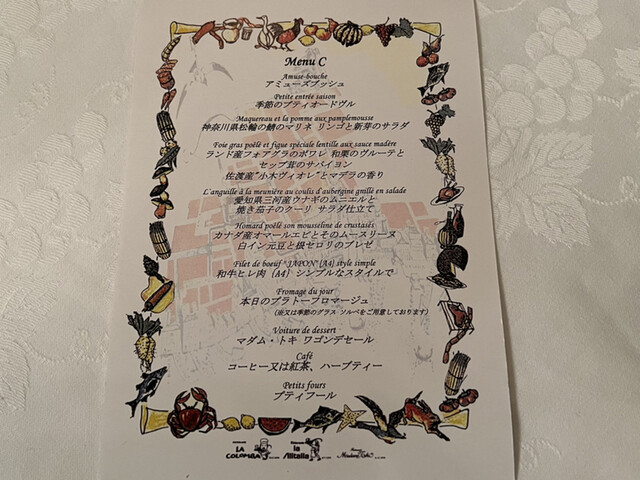 Menu C
Amuse-bouche
アミューズブッシュ
Petite entrée saison
季節のプティオードヴル
Maquereau et la pomme aux pamplemousse
神奈川県松輪の鯖のマリネ リンゴと新芽のサラダ
Foie gras poêlé et figue spéciale lentille aux sauce madère
ランド産フォアグラのポワレ 和栗のヴルーテと
セップ茸のサバイヨン
佐渡産"小木ヴィオレ"とマデラの香り
L'anguille à la meunière au coulis d'aubergine grillé en salade
愛知県三河産ウナギのムニエルと
焼き茄子のクーリ サラダ仕立て
Homard poêlé son mousseline de crustasés
カナダ産オマールエビとそのムースリーヌ
白イン元豆と根セロリのブレゼ
Filet de boeuf "JAPON" {A4} style simple
和牛ヒレ肉 {A4} シンプルなスタイルで
Fromage du jour
本日のプラトーフロマージュ
(※又は季節のグラス ソルベをご用意しております)
Voiture de dessert
マダム・トキ ワゴンデセール
Café
コーヒー又は紅茶、ハーブティー
Petits fours
プティフール
LA COLOMBA
la Alitalia
Madame Toki